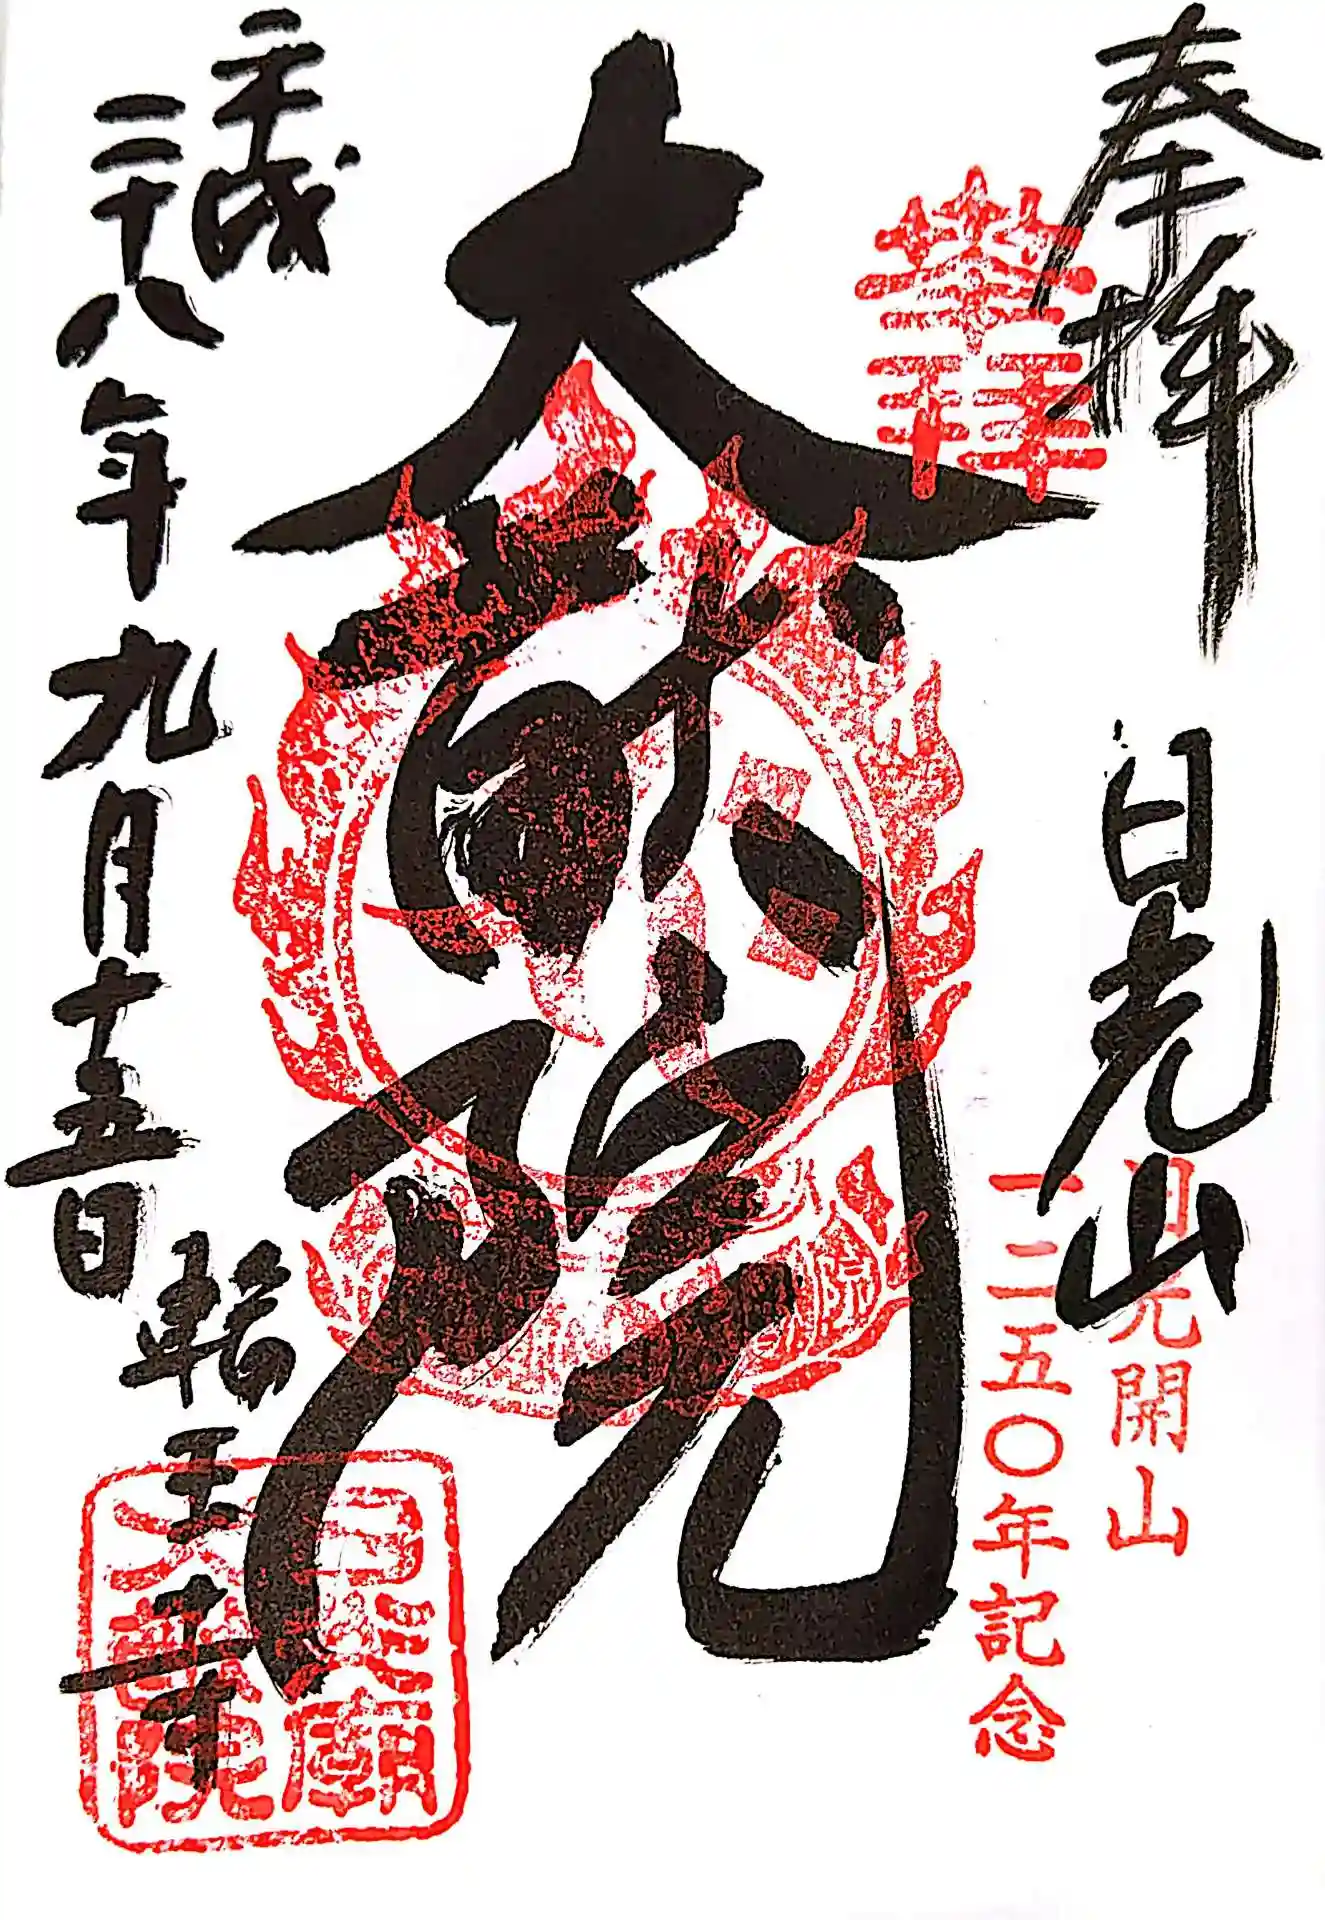 奉拝
日光山
日光開山
一二五〇年記念
大猷院
平成
二十八年九月十五日
輪王寺